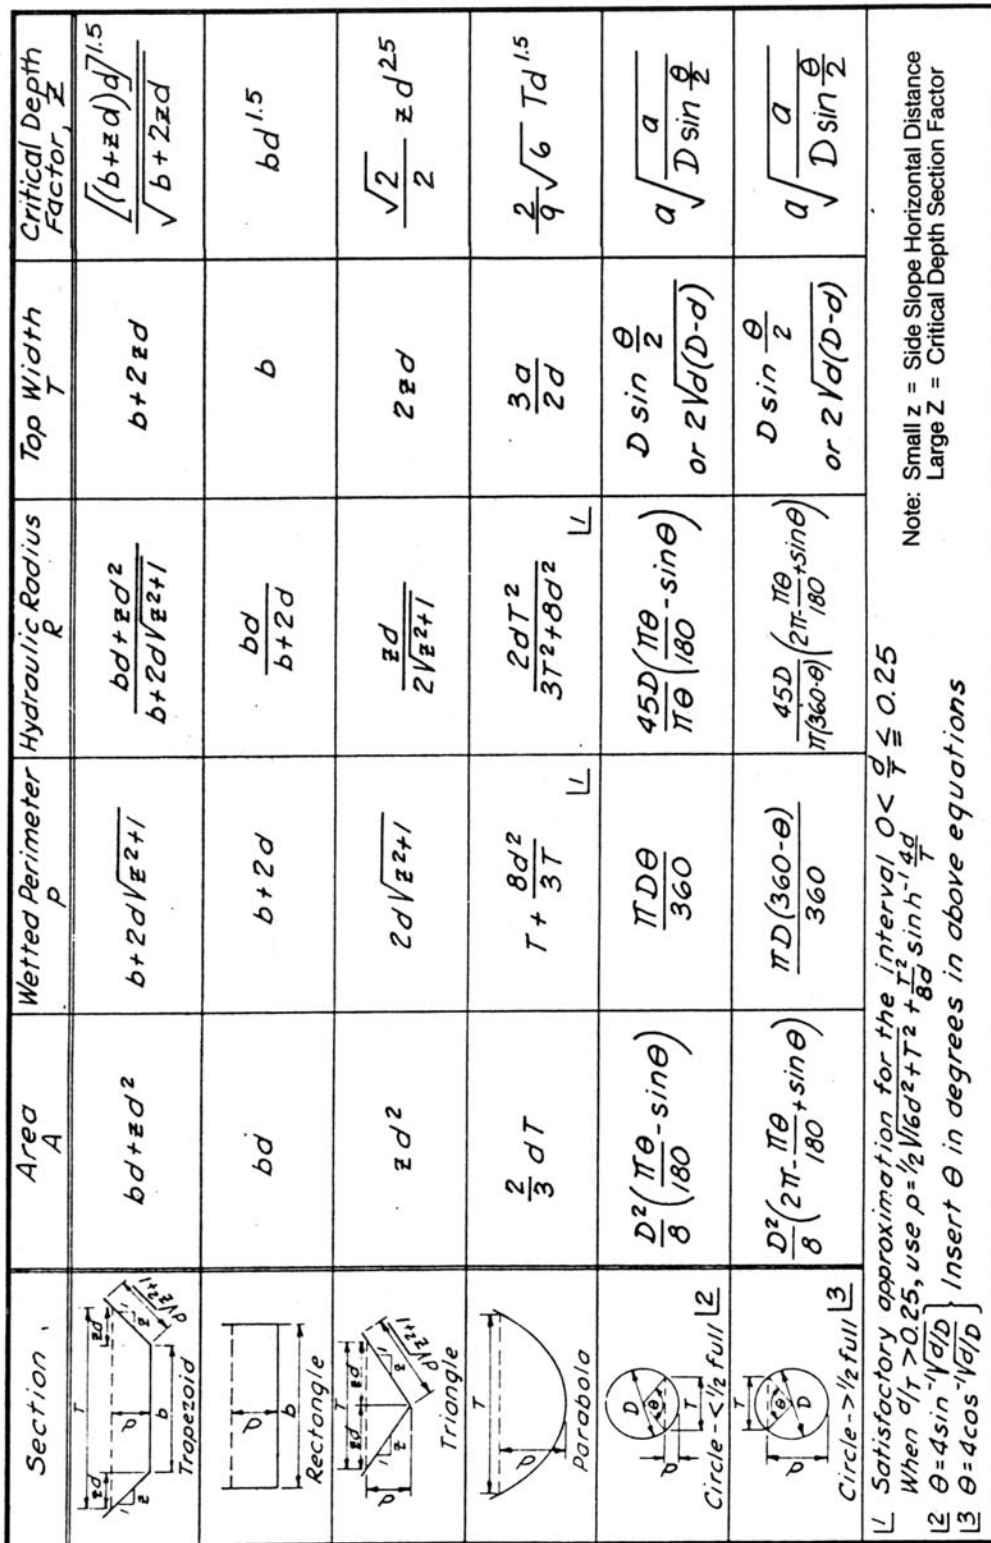 Section
Area A
Wetted Perimeter P
Hydraulic Radius R
Top Width T
Critical Depth Factor, Z
T
zd
zd
1
z
d
b
1
z
d√z²+1
Trapezoid
bd+zd²
b+2d√z²+1
bd+zd² / b+2d√z²+1
b+2zd
[(b+zd)d]^1.5 / √b+2zd
d
b
Rectangle
bd
b+2d
bd / b+2d
b
bd^1.5
T
zd
zd
1
z
d
1
z
d√z²+1
Triangle
zd²
2d√z²+1
zd / 2√z²+1
2zd
√2 / 2 zd^2.5
T
d
Parabola
2/3 dT
T + 8d² / 3T |1
2dT² / 3T²+8d² |1
3a / 2d
2/9 √6 Td^1.5
D
θ
T
d
Circle-<1/2 full |2
D²/8 (πθ/180 - sinθ)
πDθ / 360
45D/πθ (πθ/180 - sinθ)
D sin θ/2
or 2√d(D-d)
a√(a / D sin θ/2)
T
θ
D
d
Circle->1/2 full |3
D²/8 (2π - πθ/180 + sinθ)
πD(360-θ) / 360
45D/π(360-θ) (2π - πθ/180 + sinθ)
D sin θ/2
or 2√d(D-d)
a√(a / D sin θ/2)
|1 Satisfactory approximation for the interval 0 < d/T ≦ 0.25
When d/T >0.25, use p=1/2√16d²+T² + T²/8d sinh⁻¹ 4d/T
|2 θ=4sin⁻¹√d/D
|3 θ=4cos⁻¹√d/D } Insert θ in degrees in above equations
Note: Small z = Side Slope Horizontal Distance
Large Z = Critical Depth Section Factor